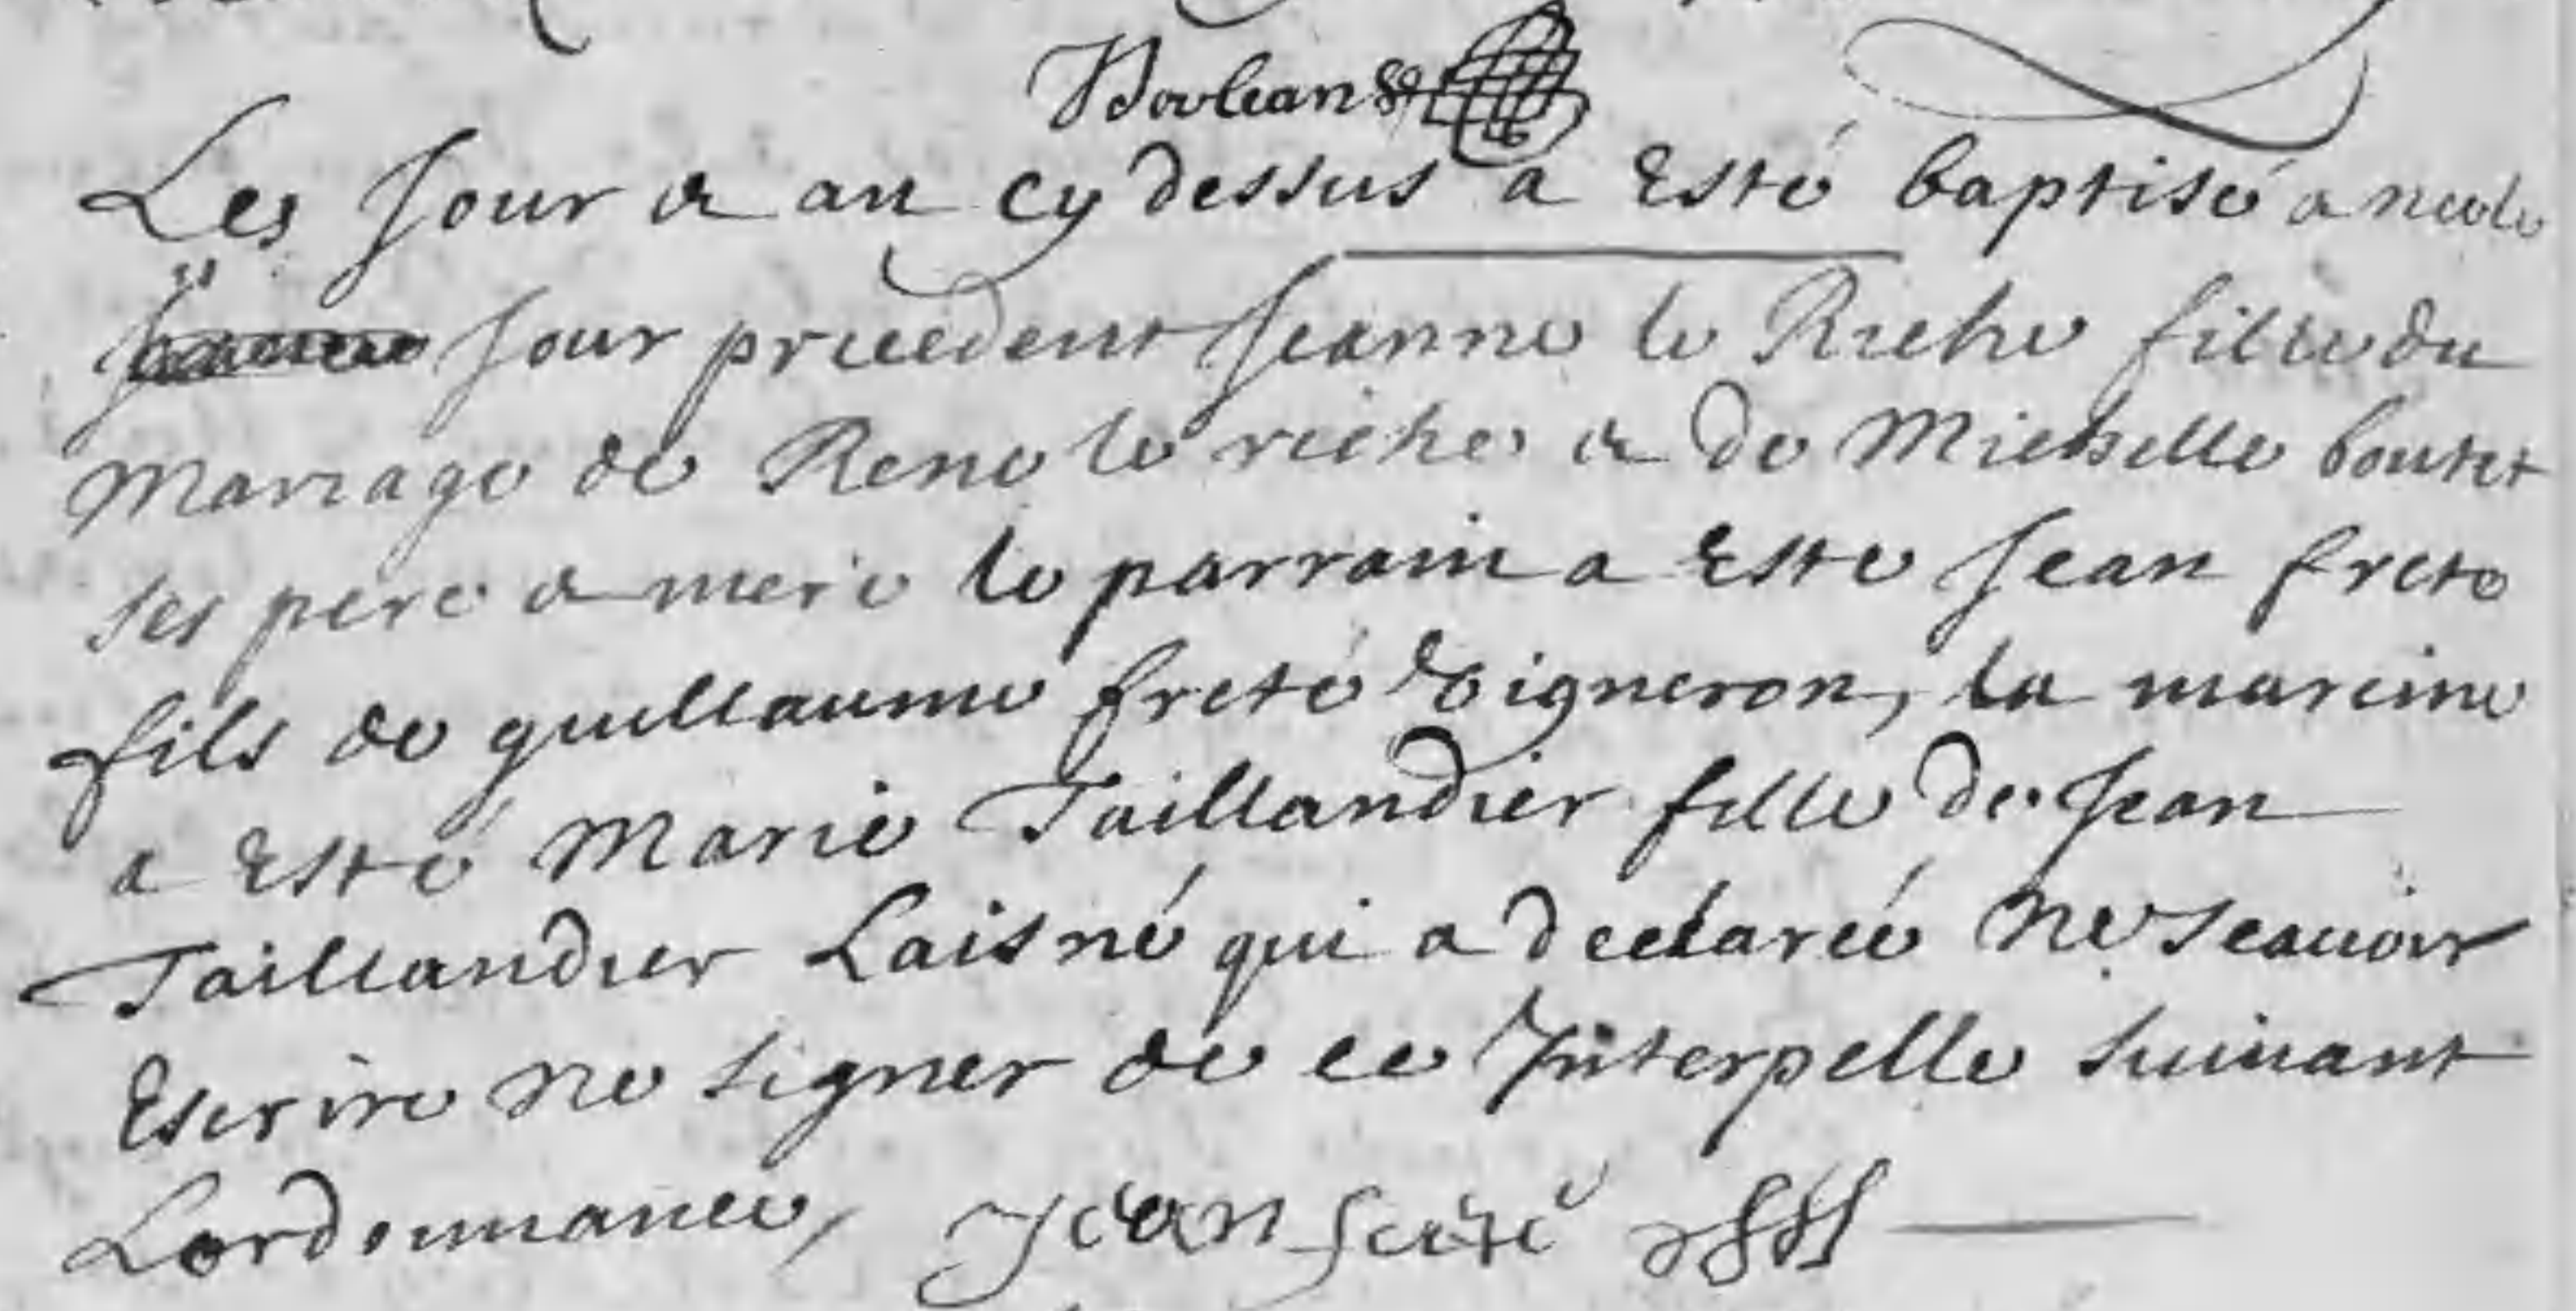 Bouleau
Les Jour & an cy dessus a Esté baptisé a nee le
Jour precedent Jeanne le Riche fille du
Mariage de Rene le riche & de Michelle boutet
ses pere & mere le parrain a Este Jean freté
fils de guillaume freté Vigneron, la mareine
a Esté Marie Taillandier fille de Jean
Taillandier Laisné qui a declareé ne scauoir
Escrire ne signer de ce Interpelle suiuant
Lordonnance, Jean freté